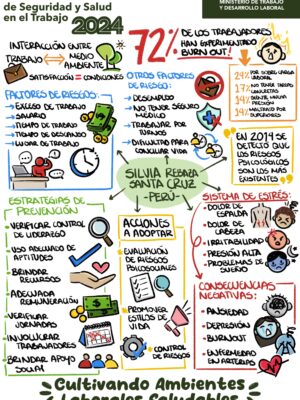 de Seguridad y Salud
en el Trabajo
2024
MINISTERIO DE TRABAJO
Y DESARROLLO LABORAL
INTERACCIÓN ENTRE
TRABAJO
MEDIO
AMBIENTE
SATISFACCIÓN = CONDICIONES
72%
DE LOS TRABAJADORES
HAN EXPERIMENTADO
BURN OUT!
24% POR SOBRE CARGA
LABORAL
17% NO TENER TAREAS
CONCRETAS
14%
PRESIÓN
14% MALTRATO POR
SUPERVISORES
OTROS FACTORES
DE RIESGO:
DESEMPLEO
NO TENER SEGURO
MÉDICO
TRABAJAR POR
TURNOS
DIFICULTAD PARA
CONCILIAR VIDA
FACTORES DE RIESGO:
EXCESO DE TRABAJO
SALARIO
TIEMPO DE TRABAJO
TIEMPO DE DESCANSO
LUGAR DE TRABAJO
EN 2014 SE
DETECTÓ QUE LOS
RIESGOS
PSICOLÓGICOS
SON LOS MÁS
EXISTENTES
SILVIA REBAZA
SANTA CRUZ
-PERÚ-
ESTRATEGIAS DE
PREVENCIÓN
VERIFICAR CONTROL
DE LIDERAZGO
USO ADECUADO DE
APTITUDES
BRINDAR
RECURSOS
ADECUADA
REMUNERACIÓN
VERIFICAR
JORNADAS
INVOLUCRAR
TRABAJADORES
BRINDAR APOYO
SOCIAL
ACCIONES
A ADOPTAR
EVALUACIÓN
DE RIESGOS
PSICOSOCIALES
PROMOVER
ESTILOS DE
VIDA
CONTROL
DE RIESGOS
SISTEMA DE ESTRÉS:
DOLOR DE
ESPALDA
DOLOR DE
CABEZA
IRRITABILIDAD
PRESIÓN ALTA
PROBLEMAS DE
SUEÑO
CONSECUENCIAS
NEGATIVAS:
ANSIEDAD
DEPRESIÓN
BURNOUT
ENFERMEDAD
EN ARTERIAS
Cultivando Ambientes
Laborales Saludables